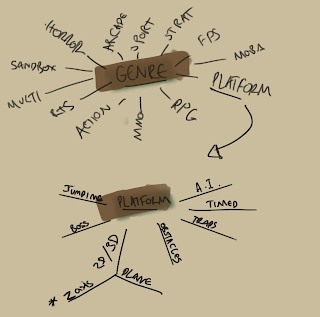 HORROR
ARCADE
SPORT
STRAT
FPS
MOBA
SANDBOX
GENRE
PLATFORM
MULTI
RTS
ACTION
MMO
RPG
JUMPING
PLATFORM
A.I.
TIMED
TRAPS
BOSS
2D/3D
OBSTACLES
PLANE
* Z axis